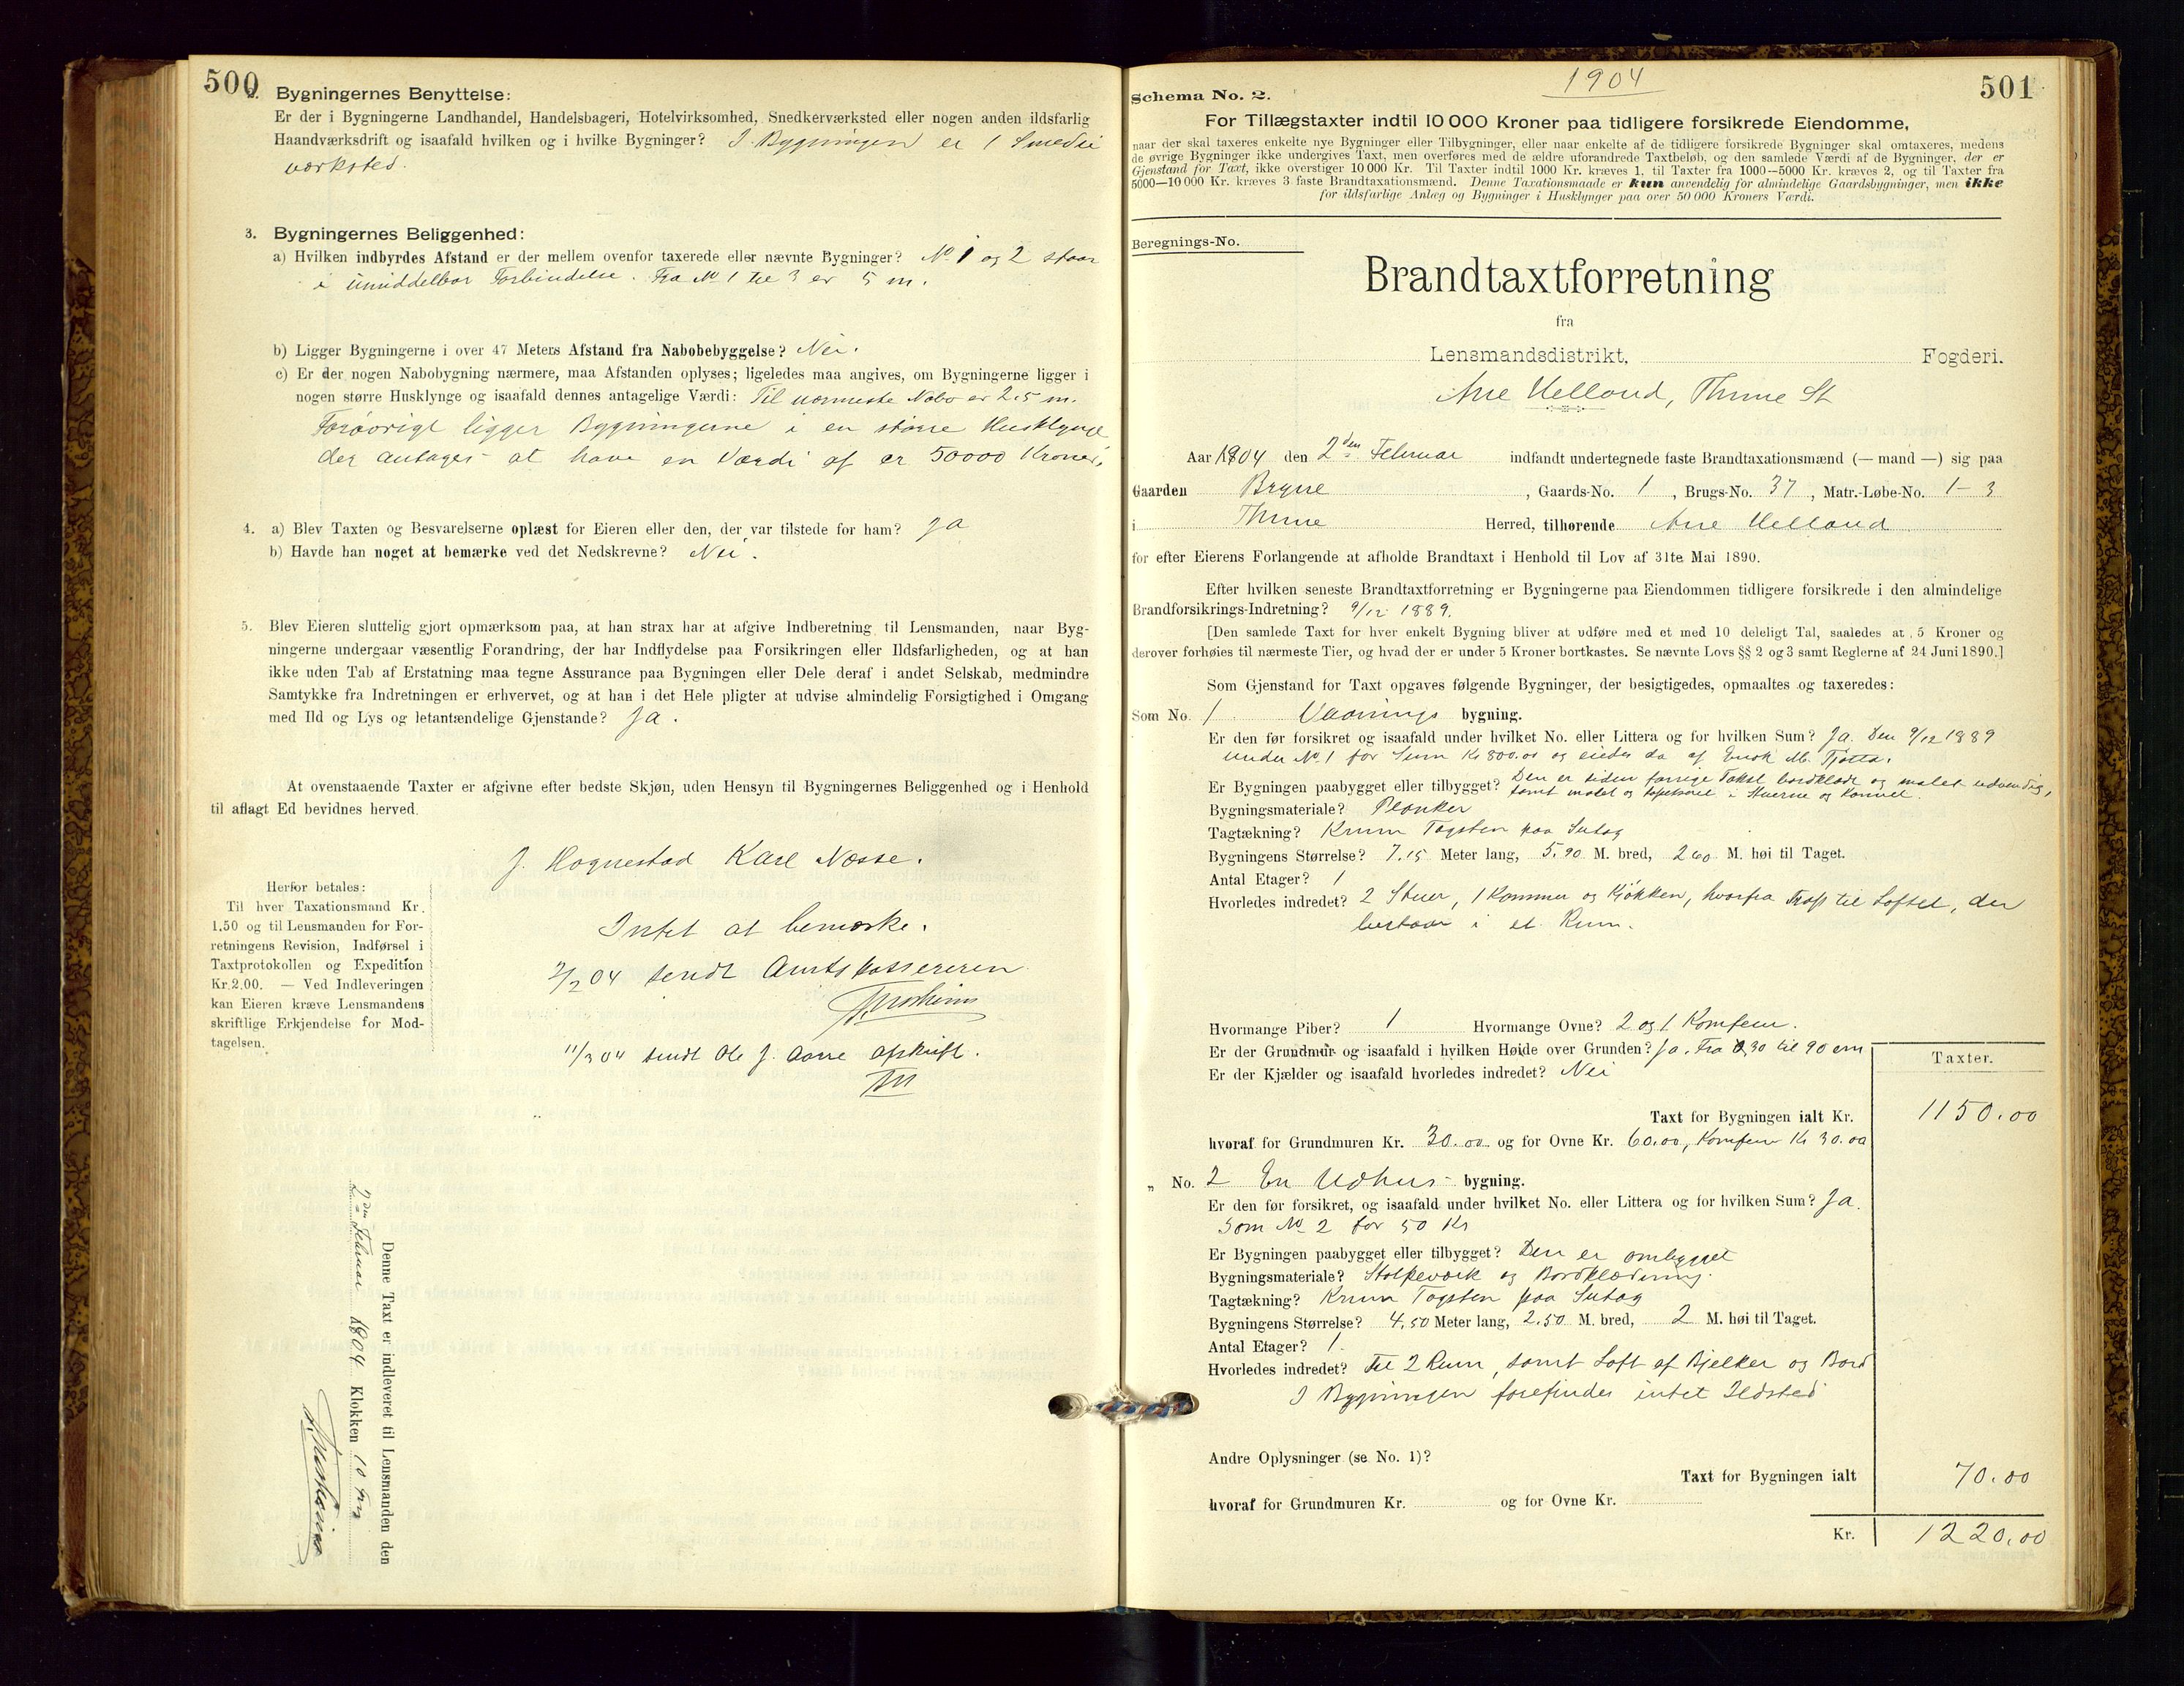 500
Bygningernes Benyttelse:
Er der i Bygningerne Landhandel, Handelsbageri, Hotelvirksomhed, Snedkerværksted eller nogen anden ildsfarlig
Haandværksdrift og isaafald hvilken og i hvilke Bygninger? I Bygningen er 1 Smedie
værksted.
3. Bygningernes Beliggenhed:
a) Hvilken indbyrdes Afstand er der mellem ovenfor taxerede eller nævnte Bygninger? No 1 og 2 staar
i umiddelbar Forbindelse. Fra No 1 til 3 er 5 m.
b) Ligger Bygningerne i over 47 Meters Afstand fra Nabobebyggelse? Nei.
c) Er der nogen Nabobygning nærmere, maa Afstanden oplyses; ligeledes maa angives, om Bygningerne ligger i
nogen større Husklynge og isaafald dennes antagelige Værdi: Til nærmeste Nabo er 2.5 m.
Forøvrigt ligger Bygningerne i en større Husklynge
der antages at have en Værdi af er 50000 Kroner.
4. a) Blev Taxten og Besvarelserne oplæst for Eieren eller den, der var tilstede for ham? Ja
b) Havde han noget at bemærke ved det Nedskrevne? Nei.
5. Blev Eieren sluttelig gjort opmærksom paa, at han strax har at afgive Indberetning til Lensmanden, naar Byg-
ningerne undergaar væsentlig Forandring, der har Indflydelse paa Forsikringen eller Ildsfarligheden, og at han
ikke uden Tab af Erstatning maa tegne Assurance paa Bygningen eller Dele deraf i andet Selskab, medmindre
Samtykke fra Indretningen er erhvervet, og at han i det Hele pligter at udvise almindelig Forsigtighed i Omgang
med Ild og Lys og letantændelige Gjenstande? Ja.
At ovenstaaende Taxter er afgivne efter bedste Skjøn, uden Hensyn til Bygningernes Beliggenhed og i Henhold
til aflagt Ed bevidnes herved.
J. Hognestad Karl Næsse.
Herfor betales:
Til hver Taxationsmand Kr.
1,50 og til Lensmanden for For-
retningens Revision, Indførsel i
Taxtprotokollen og Expedition
Kr. 2.00. — Ved Indleveringen
kan Eieren kræve Lensmandens
skriftlige Erkjendelse for Mod-
tagelsen.
Intet at bemærke.
2/2 04 sendt Amtskassereren
11/3 04 sendt Ole J. Aarre afskrift.
Denne Taxt er indleveret til Lensmanden den
2den Februar 1904 Klokken 10 Fm
501
1904
Schema No. 2.
For Tillægstaxter indtil 10 000 Kroner paa tidligere forsikrede Eiendomme,
naar der skal taxeres enkelte nye Bygninger eller Tilbygninger, eller naar enkelte af de tidligere forsikrede Bygninger skal omtaxeres, medens
de øvrige Bygninger ikke undergives Taxt, men overføres med de ældre uforandrede Taxtbeløb, og den samlede Værdi af de Bygninger, der er
Gjenstand for Taxt, ikke overstiger 10 000 Kr. Til Taxter indtil 1000 Kr. kræves 1, til Taxter fra 1000—5000 Kr. kræves 2, og til Taxter fra
5000—10 000 Kr. kræves 3 faste Brandtaxationsmænd. Denne Taxationsmaade er kun anvendelig for almindelige Gaardsbygninger, men ikke
for ildsfarlige Anlæg og Bygninger i Husklynger paa over 50 000 Kroners Værdi.
Beregnings-No.
Brandtaxtforretning
fra
Lensmandsdistrikt, Fogderi.
Ane Helland, Thime St
Aar 1904 den 2den Februar indfandt undertegnede faste Brandtaxationsmænd (— mand —) sig paa
Gaarden Bryne, Gaards-No. 1, Brugs-No. 37, Matr.-Løbe-No. 1-3
i Thime Herred, tilhørende Ane Helland
for efter Eierens Forlangende at afholde Brandtaxt i Henhold til Lov af 31te Mai 1890.
Efter hvilken seneste Brandtaxtforretning er Bygningerne paa Eiendommen tidligere forsikrede i den almindelige
Brandforsikrings-Indretning? 9/12 1889.
[Den samlede Taxt for hver enkelt Bygning bliver at udføre med et med 10 deleligt Tal, saaledes at 5 Kroner og
derover forhøies til nærmeste Tier, og hvad der er under 5 Kroner bortkastes. Se nævnte Lovs §§ 2 og 3 samt Reglerne af 24 Juni 1890.]
Som Gjenstand for Taxt opgaves følgende Bygninger, der besigtigedes, opmaaltes og taxeredes:
Som No. 1 Vaanings bygning.
Er den før forsikret og isaafald under hvilket No. eller Littera og for hvilken Sum? Ja. Den 9/12 1889
under No. 1 for Sum Kr 800.00 og eiedes da af Enok M. Tjøtta.
Er Bygningen paabygget eller tilbygget? Den er siden forrige Takst bordklædt og malet udvendig,
samt malet og tapetseret i Stuerne og Kamret.
Bygningsmateriale? Planker
Tagtækning? Krum Tagsten paa Sutag
Bygningens Størrelse? 7,15 Meter lang, 5,90 M. bred, 2 60 M. høi til Taget.
Antal Etager? 1
Hvorledes indredet? 2 Stuer, 1 Kammer og Kjøkken, hvorfra Trap til Loftet, der
bestaar i et Rum.
Hvormange Piber? 1 Hvormange Ovne? 2 og 1 Komfeur.
Er der Grundmur og isaafald i hvilken Høide over Grunden? Ja. Fra 30 til 90 cm
Er der Kjælder og isaafald hvorledes indredet? Nei
Taxter.
Taxt for Bygningen ialt Kr. 1150.00
hvoraf for Grundmuren Kr. 30.00 og for Ovne Kr. 60.00, Komfeur Kr 30.00
„ No. 2 En Udhus- bygning.
Er den før forsikret, og isaafald under hvilket No. eller Littera og for hvilken Sum? Ja.
Som No 2 for 50 Kr
Er Bygningen paabygget eller tilbygget? Den er ombygget
Bygningsmateriale? Stolpeværk og Bordklædning.
Tagtækning? Krum Tagsten paa Sutag
Bygningens Størrelse? 4,50 Meter lang, 2.50 M. bred, 2 M. høi til Taget.
Antal Etager? 1.
Hvorledes indredet? Til 2 Rum, samt Loft af Bjelker og Bord
I Bygningen forefindes intet Ildsted
Andre Oplysninger (se No. 1)?
Taxt for Bygningen ialt 70.00
hvoraf for Grundmuren Kr. og for Ovne Kr.
Kr. 1220.00